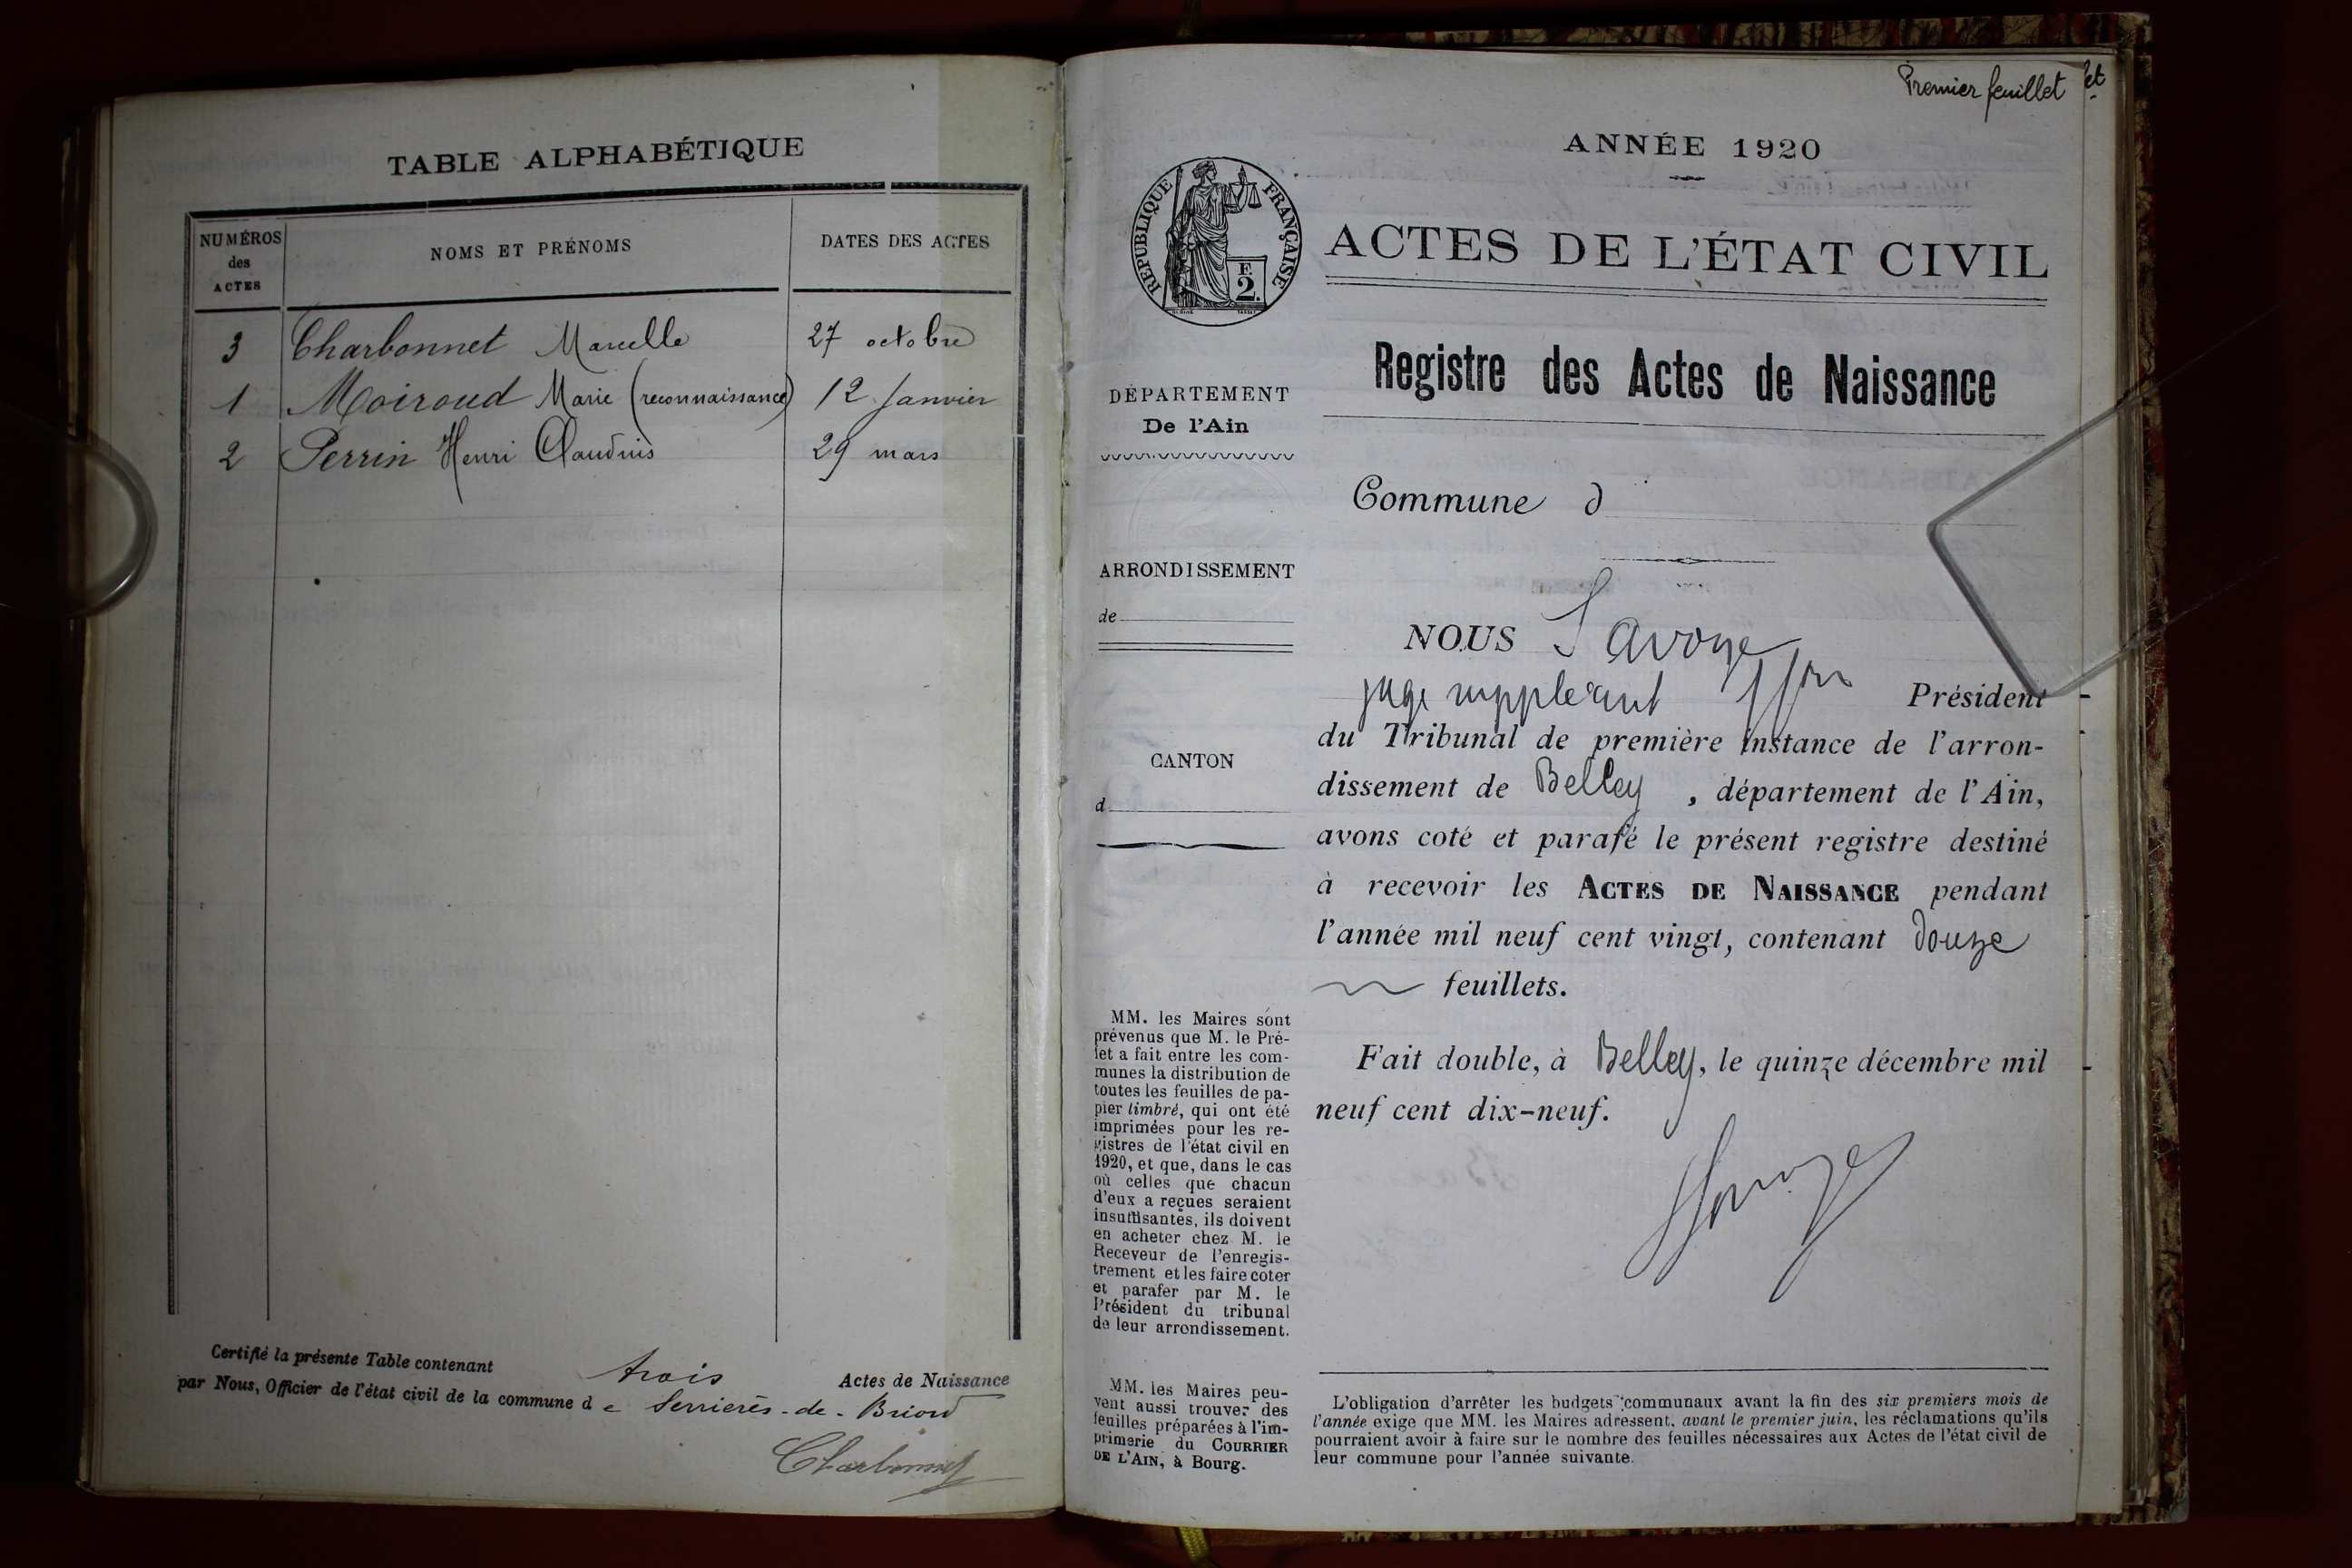 TABLE ALPHABÉTIQUE
NUMÉROS
des
ACTES
NOMS ET PRÉNOMS
DATES DES ACTES
3 Charbonnet Marcelle 27 octobre
1 Moiroud Marie (reconnaissance) 12 Janvier
2 Perrin Henri Claudius 29 mars
Certifié la présente Table contenant trois Actes de Naissance
par Nous, Officier de l'état civil de la commune d e Serrières-de-Briord
Charbonnet
Premier feuillet
et
ANNÉE 1920
RÉPUBLIQUE FRANÇAISE
F.
2.
ACTES DE L'ÉTAT CIVIL
Registre des Actes de Naissance
DÉPARTEMENT
De l'Ain
ARRONDISSEMENT
de
CANTON
d
MM. les Maires sont
prévenus que M. le Pré-
fet a fait entre les com-
munes la distribution de
toutes les feuilles de pa-
pier timbré, qui ont été
imprimées pour les re-
gistres de l'état civil en
1920, et que, dans le cas
où celles que chacun
d'eux a reçues seraient
insuffisantes, ils doivent
en acheter chez M. le
Receveur de l'enregis-
trement et les faire coter
et parafer par M. le
Président du tribunal
de leur arrondissement.
MM. les Maires peu-
vent aussi trouver des
feuilles préparées à l'im-
primerie du COURRIER
DE L'AIN, à Bourg.
Commune d
NOUS Savoye
juge suppléant ffon Président
du Tribunal de première instance de l'arron-
dissement de Belley , département de l'Ain,
avons coté et parafé le présent registre destiné
à recevoir les ACTES DE NAISSANCE pendant
l'année mil neuf cent vingt, contenant douze
feuillets.
Fait double, à Belley, le quinze décembre mil
neuf cent dix-neuf.
L'obligation d'arrêter les budgets communaux avant la fin des six premiers mois de
l'année exige que MM. les Maires adressent, avant le premier juin, les réclamations qu'ils
pourraient avoir à faire sur le nombre des feuilles nécessaires aux Actes de l'état civil de
leur commune pour l'année suivante.